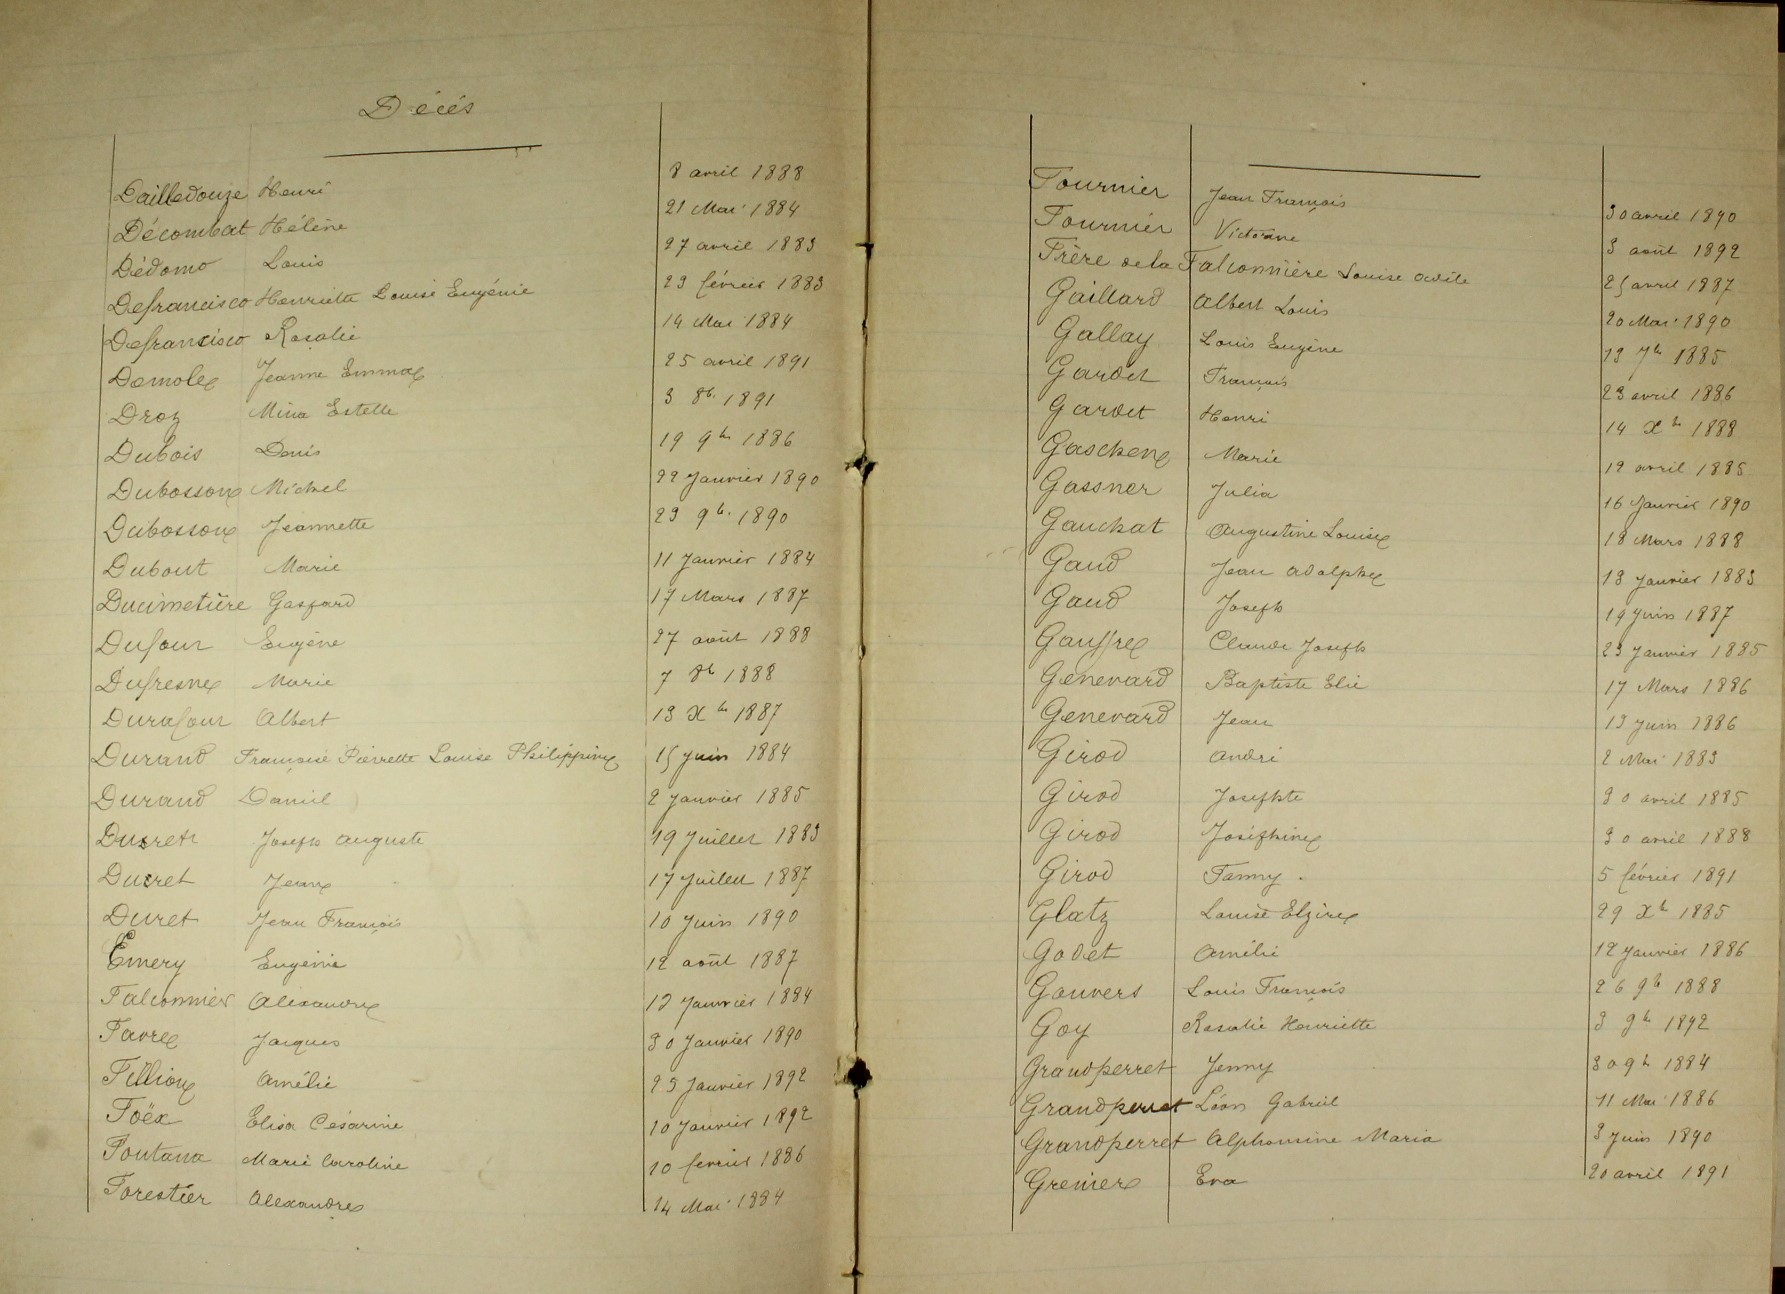 Décés
Dailledouze Henri 8 avril 1888
Décombat Hélène 21 Mai 1884
Dédomo Louis 27 avril 1883
Defrancisco Henriette Louise Eugénie 23 février 1883
Defrancisco Rosalie 14 Mai 1884
Demole Jeanne Emma 25 avril 1891
Droz Mina Estelle 3 8b. 1891
Dubois Denis 19 9bre 1886
Dubosson Michel 22 Janvier 1890
Dubosson Jeannette 23 9b. 1890
Dubout Marie 11 Janvier 1884
Ducimetière Gaspard 17 Mars 1887
Dufour Eugène 27 août 1888
Dufresne Marie 7 8b 1888
Durafour Albert 13 Xbre 1887
Durand Françoise Pierrette Louise Philippine 15 juin 1884
Durand Daniel 2 Janvier 1885
Duret Joseph Auguste 19 Juillet 1883
Duret Jean 17 Juillet 1887
Duret Jean François 10 Juin 1890
Emery Eugénie 12 août 1887
Falconnier Alexandre 13 Janvier 1884
Favre Jacques 30 Janvier 1890
Fillion Amélie 25 Janvier 1892
Foëx Elisa Césarine 10 Janvier 1892
Fontana Marie Caroline 10 fevrier 1886
Forestier Alexandre 14 Mai 1884
Fournier Jean François 30 avril 1890
Fournier Victorine 3 août 1892
Frère de la Falconnière Louise Odile 25 avril 1887
Gaillard Albert Louis 20 Mai 1890
Gallay Louis Eugène 13 7b 1885
Gardet François 23 avril 1886
Gardet Henri 14 Xb 1888
Gaschen Marie 12 avril 1885
Gassner Julia 16 Janvier 1890
Gauchat Augustine Louise 18 Mars 1888
Gaud Jean Adolphe 13 Janvier 1883
Gaud Joseph 19 Juin 1887
Gauffre Claude Joseph 23 Janvier 1885
Genevard Baptiste Elie 17 Mars 1886
Genevard Jean 13 Juin 1886
Girod André 2 Mai 1883
Girod Josephte 30 avril 1885
Girod Joséphine 30 avril 1888
Girod Fanny 5 février 1891
Glatz Louise Elzire 29 Xb 1885
Godet Amélie 12 Janvier 1886
Gonvers Louis François 26 9b 1888
Goy Rosalie Henriette 3 9b 1892
Grandperret Jenny 30 9b 1884
Grandperret Léon Gabriel 11 Mai 1886
Grandperret Alphonsine Maria 3 Juin 1890
Grenier Eva 20 avril 1891